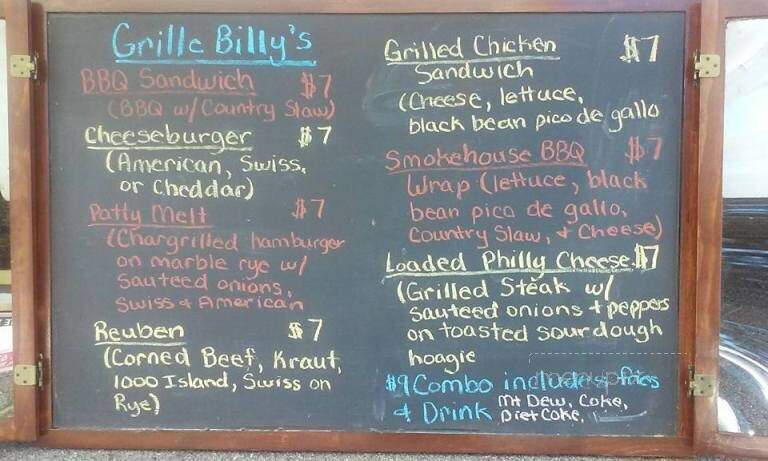 Grille Billy's
BBQ Sandwich $7
(BBQ w/ Country Slaw)
Cheeseburger $7
(American, Swiss,
or Cheddar)
Patty Melt $7
(Chargrilled hamburger
on marble rye w/
Sauteed onions,
Swiss & American
Reuben $7
(Corned Beef, Kraut,
1000 Island, Swiss on
Rye)
Grilled Chicken $7
Sandwich
(Cheese, lettuce,
black bean pico de gallo
Smokehouse BBQ $7
Wrap (lettuce, black
bean pico de gallo,
Country Slaw, + Cheese)
Loaded Philly Cheese $7
(Grilled Steak w/
Sauteed onions + peppers
on toasted sourdough
hoagie
$9 Combo includes fries
& Drink Mt Dew, Coke,
Diet Coke,